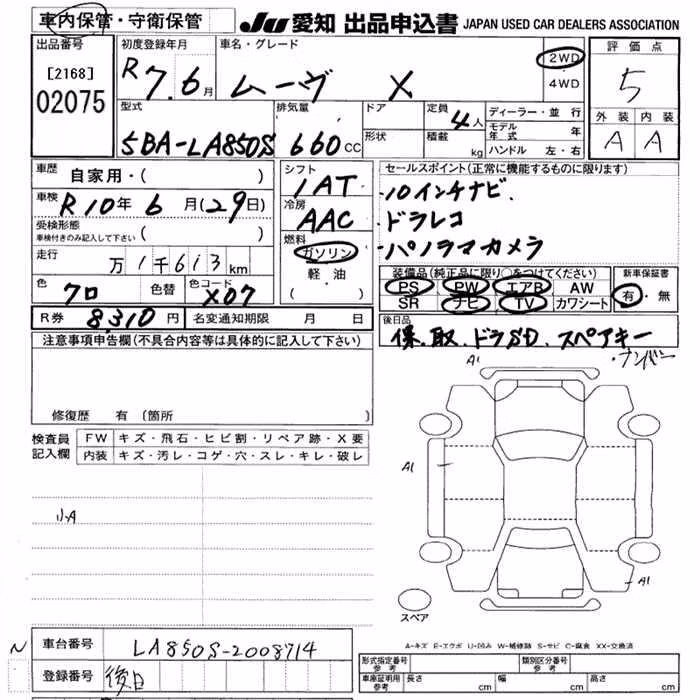 車内保管・守衛保管 JU 愛知 出品申込書 JAPAN USED CAR DEALERS ASSOCIATION
出品番号 [2168] 02075
初度登録年月 R7.6月
車名・グレード ムーヴ X
2WD・4WD
評価点 5
外装 内装 A A
型式 5BA-LA850S
排気量 660cc
ドア 形状
定員 4人 積載 kg
ディーラー・並行
モデル年式 年
ハンドル 左・右
車歴 自家用・( )
車検 R10年6月(29日)
受検形態 車検付きのみ記入して下さい ( )
走行 万1千613km
色 クロ 色替 色コード X07
シフト IAT
冷房 AAC
燃料 ガソリン 軽油 ( )
セールスポイント(正常に機能するものに限ります)
・10インチナビ.
・ドラレコ
・パノラマカメラ
装備品(純正品に限り○をつけてください)
PS PW エアB AW
SR ナビ TV カワシート
新車保証書 有・無
R券 8,310円 名変通知期限 月 日
後日品
保.取.ドラSD.スペアキー
・ナンバー
注意事項申告欄(不具合内容等は具体的に記入して下さい)
修復歴 有(箇所 )
検査員記入欄
FW キズ・飛石・ヒビ割・リペア跡・X要
内装 キズ・汚レ・コゲ・穴・スレ・キレ・破レ
小A
A1
A1
A1
スペア
A-キズ E-エクボ U-凹み W-補修跡 S-サビ C-腐食 XX-交換済
N 車台番号 LA850S-2008714
登録番号 後日
形式指定番号 参考 類別区分番号 参考
車庫証明用 参考 長さ cm 幅 cm 高さ cm